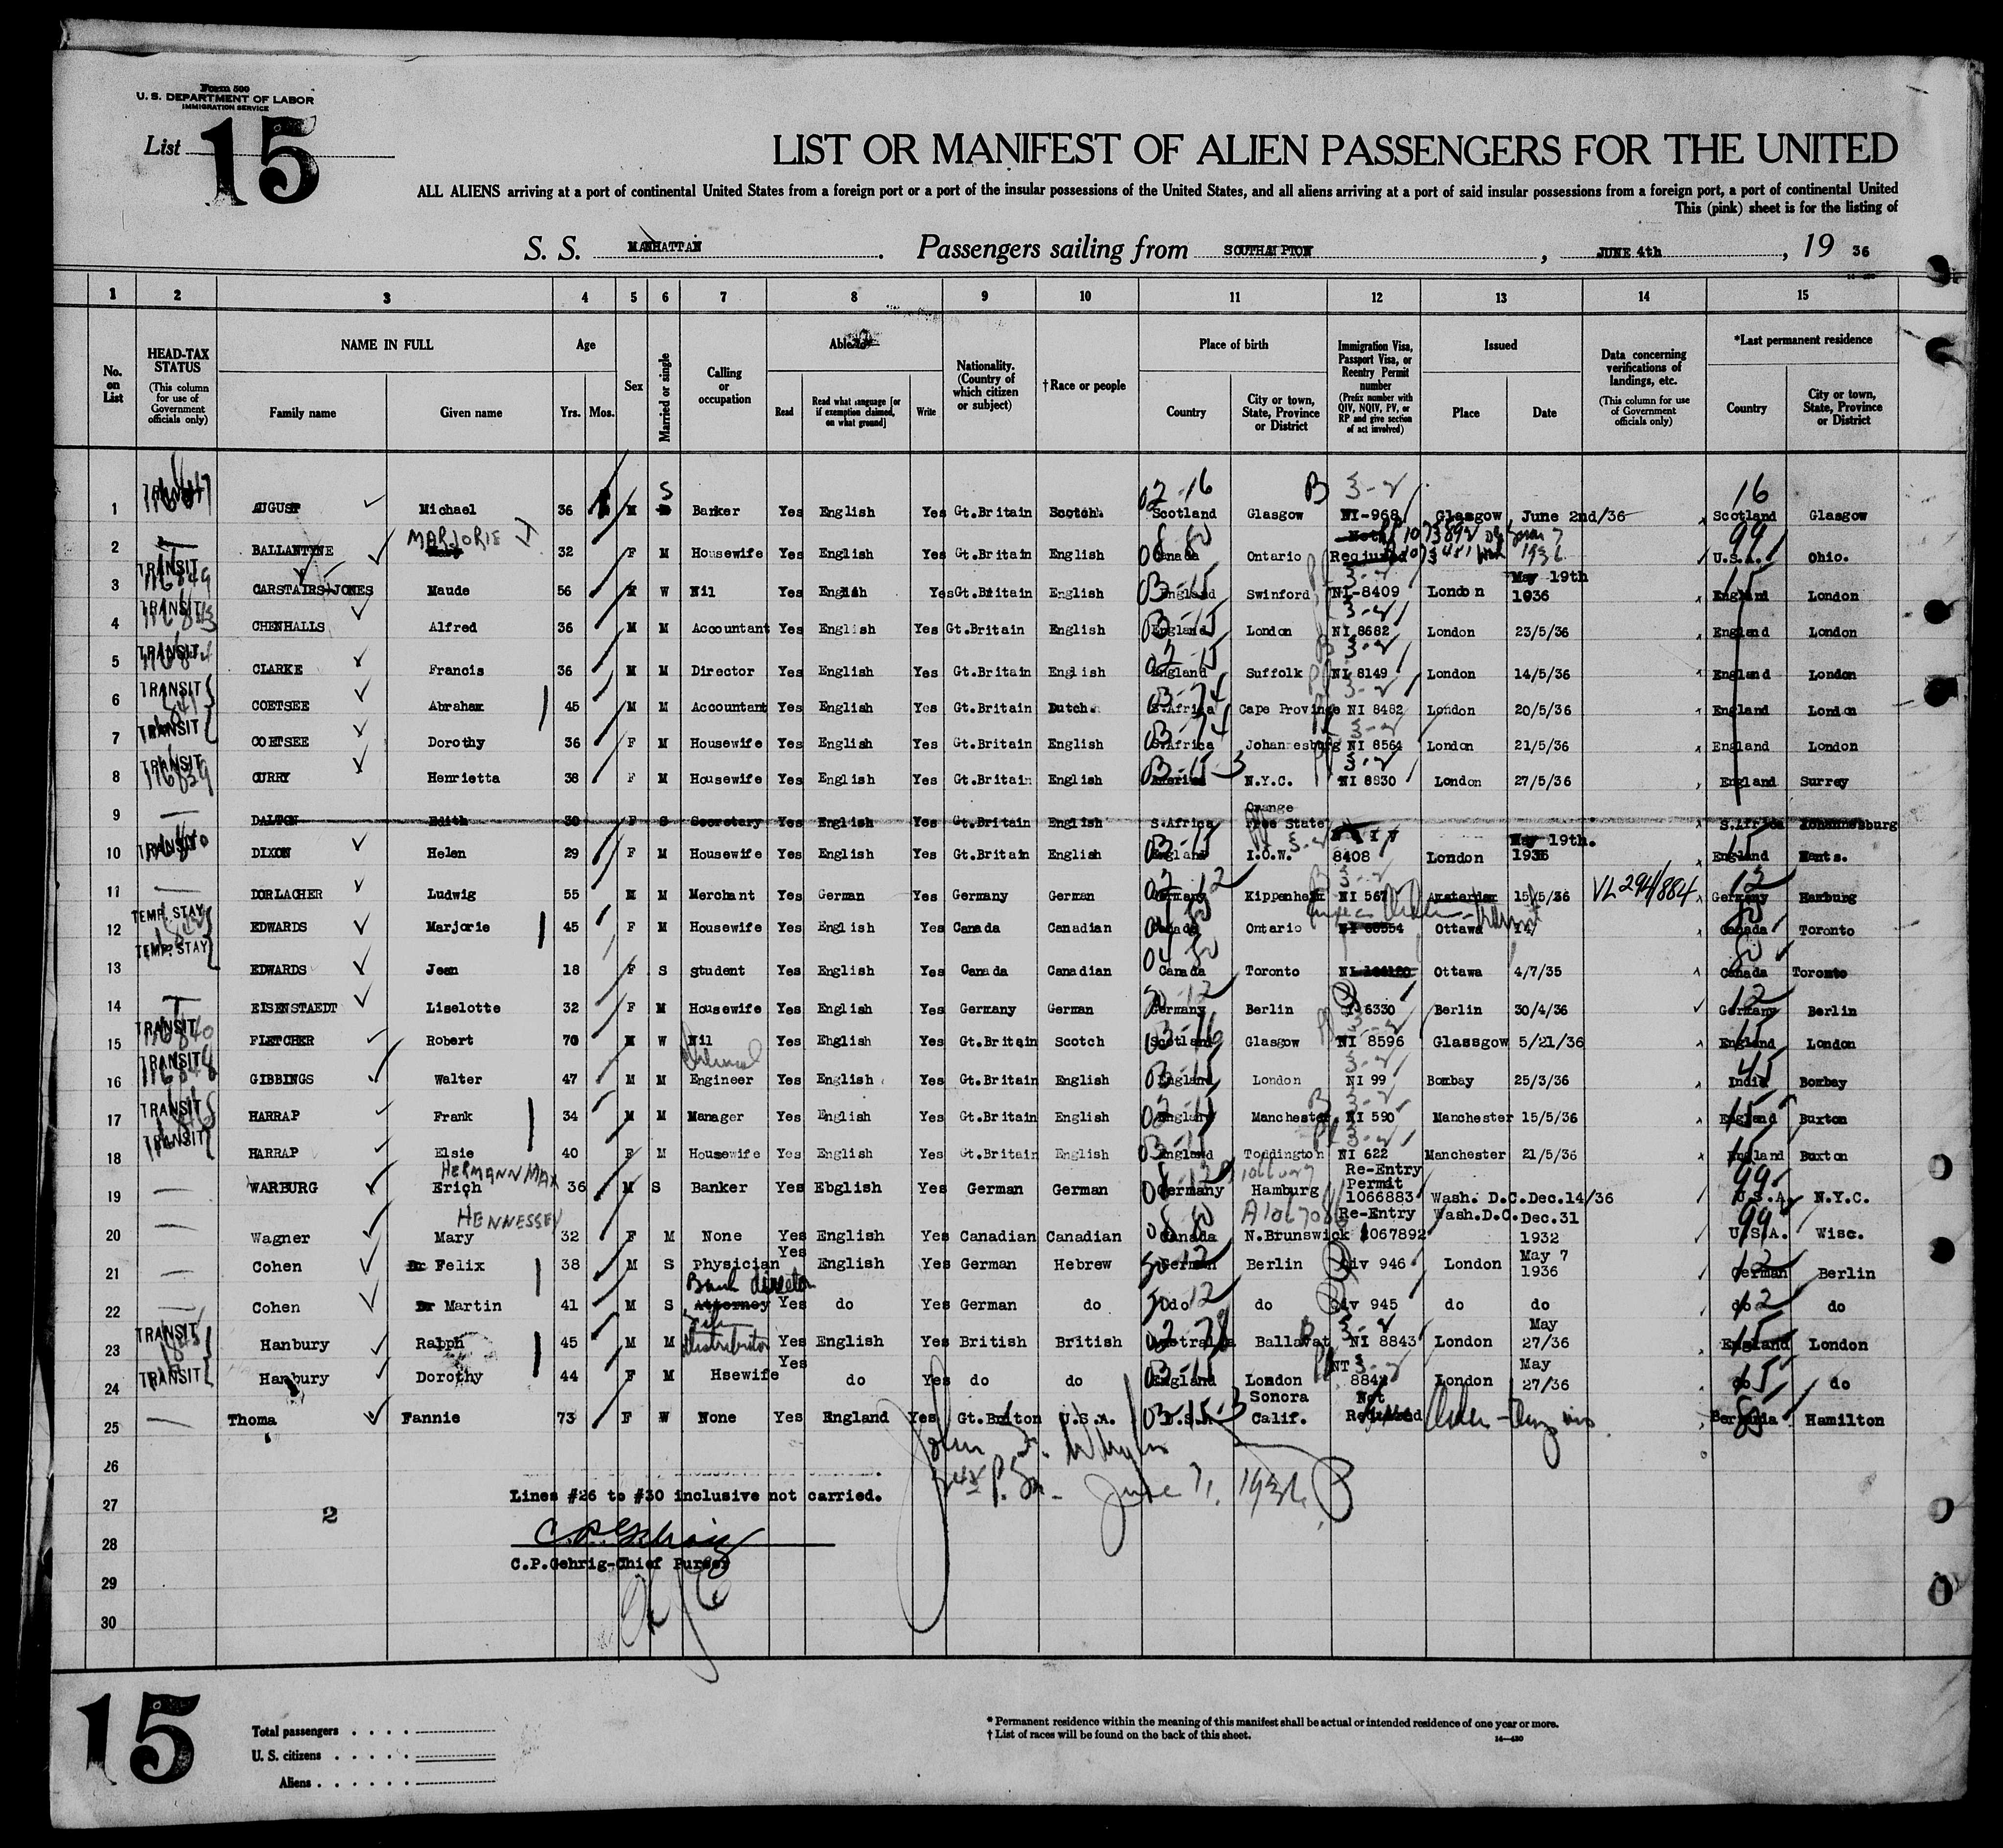 Form 500
U. S. DEPARTMENT OF LABOR
IMMIGRATION SERVICE
List 15
LIST OR MANIFEST OF ALIEN PASSENGERS FOR THE UNITED
ALL ALIENS arriving at a port of continental United States from a foreign port or a port of the insular possessions of the United States, and all aliens arriving at a port of said insular possessions from a foreign port, a port of continental United
This (pink) sheet is for the listing of
S. S. MANHATTAN. Passengers sailing from SOUTHAMPTON, JUNE 4th, 19 36
1 2 3 4 5 6 7 8 9 10 11 12 13 14 15
No. on List
HEAD-TAX STATUS (This column for use of Government officials only)
NAME IN FULL
Family name
Given name
Age
Yrs. Mos.
Sex
Married or single
Calling or occupation
Able to
Read
Read what language [or if exemption claimed, on what ground]
Write
Nationality. (Country of which citizen or subject)
†Race or people
Place of birth
Country
City or town, State, Province or District
Immigration Visa, Passport Visa, or Reentry Permit number (Prefix number with QIV, NQIV, PV, or RP and give section of act involved)
Issued
Place
Date
Data concerning verifications of landings, etc. (This column for use of Government officials only)
*Last permanent residence
Country
City or town, State, Province or District
1 AUGUST Michael 36 M S Banker Yes English Yes Gt.Britain Scotch Scotland Glasgow NI-968 Glasgow June 2nd/36 Scotland Glasgow
2 BALLANTYNE MARJORIE 32 F M Housewife Yes English Yes Gt.Britain English Canada Ontario Required 1936 U.S.A. Ohio.
3 TRANSIT CARSTAIRS-JONES Maude 56 W Nil Yes English Yes Gt.Britain English England Swinford NI-8409 London May 19th 1936 England London
4 TRANSIT CHENHALLS Alfred 36 M M Accountant Yes English Yes Gt.Britain English England London NI 8682 London 23/5/36 England London
5 TRANSIT CLARKE Francis 36 M M Director Yes English Yes Gt.Britain English England Suffolk NI 8149 London 14/5/36 England London
6 TRANSIT COETSEE Abraham 45 M M Accountant Yes English Yes Gt.Britain Dutch. S.Africa Cape Province NI 8482 London 20/5/36 England London
7 TRANSIT COETSEE Dorothy 36 F M Housewife Yes English Yes Gt.Britain English S.Africa Johannesburg NI 8564 London 21/5/36 England London
8 TRANSIT CURRY Henrietta 38 F M Housewife Yes English Yes Gt.Britain English America N.Y.C. NI 8830 London 27/5/36 England Surrey
9 DALTON Edith 30 F S Secretary Yes English Yes Gt.Britain English S.Africa Orange Free State S.Africa Johannesburg
10 TRANSIT DIXON Helen 29 F M Housewife Yes English Yes Gt.Britain English England I.O.W. 8408 London May 19th. 1936 England Hants.
11 DORLACHER Ludwig 55 M M Merchant Yes German Yes Germany German Germany Kippenheim NI 567 Amsterdam 15/5/36 VL 294/884 Germany Hamburg
12 TEMP. STAY EDWARDS Marjorie 45 F M Housewife Yes English Yes Canada Canadian Canada Ontario Ottawa Canada Toronto
13 TEMP. STAY EDWARDS Jean 18 F S student Yes English Yes Canada Canadian Canada Toronto Ottawa 4/7/35 Canada Toronto
14 EISENSTAEDT Liselotte 32 F M Housewife Yes English Yes Germany German Germany Berlin 6330 Berlin 30/4/36 Germany Berlin
15 TRANSIT FLETCHER Robert 70 M W Nil Yes English Yes Gt.Britain Scotch Scotland Glasgow NI 8596 Glassgow 5/21/36 England London
16 TRANSIT GIBBINGS Walter 47 M M Engineer Yes English Yes Gt.Britain English England London NI 99 Bombay 25/3/36 India Bombay
17 TRANSIT HARRAP Frank 34 M M Manager Yes English Yes Gt.Britain English England Manchester NI 590 Manchester 15/5/36 England Buxton
18 TRANSIT HARRAP Elsie 40 F M Housewife Yes English Yes Gt.Britain English England Toddington NI 622 Manchester 21/5/36 England Buxton
19 WARBURG Erich HERMANN MAX 36 M S Banker Yes Ebglish Yes German German Germany Hamburg Re-Entry Permit 1066883 Wash. D.C. Dec.14/36 U.S.A. N.Y.C.
20 Wagner Mary HENNESSEY 32 F M None Yes English Yes Canadian Canadian Canada N.Brunswick Re-Entry 1067892 Wash.D.C. Dec.31 1932 U.S.A. Wisc.
21 Cohen Dr Felix 38 M S Physician Yes English Yes German Hebrew German Berlin 946 London May 7 1936 German Berlin
22 Cohen Dr Martin 41 M S Bank director Attorney Yes do Yes German do do do 945 do do do do
23 TRANSIT Hanbury Ralph 45 M M Film Distributor Yes English Yes British British Australia Ballarat NI 8843 London May 27/36 England London
24 TRANSIT Hanbury Dorothy 44 F M Hsewife Yes do Yes do do England London London May 27/36 do do
25 Thoma Fannie 73 F W None Yes England Yes Gt.Briton U.S.A. U.S.A. Sonora Calif. Not Required Bermuda Hamilton
26
27
28
29
30
Lines #26 to #30 inclusive not carried.
2
June 7, 1936
C.P.Gehrig-Chief Purser
15
Total passengers
U. S. citizens
Aliens
* Permanent residence within the meaning of this manifest shall be actual or intended residence of one year or more.
† List of races will be found on the back of this sheet.
14—430